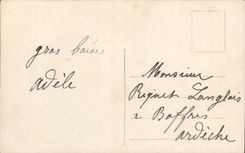 gros baisés
adèle
Monsieur
Reynet Langlois
a Boffres
ardèche